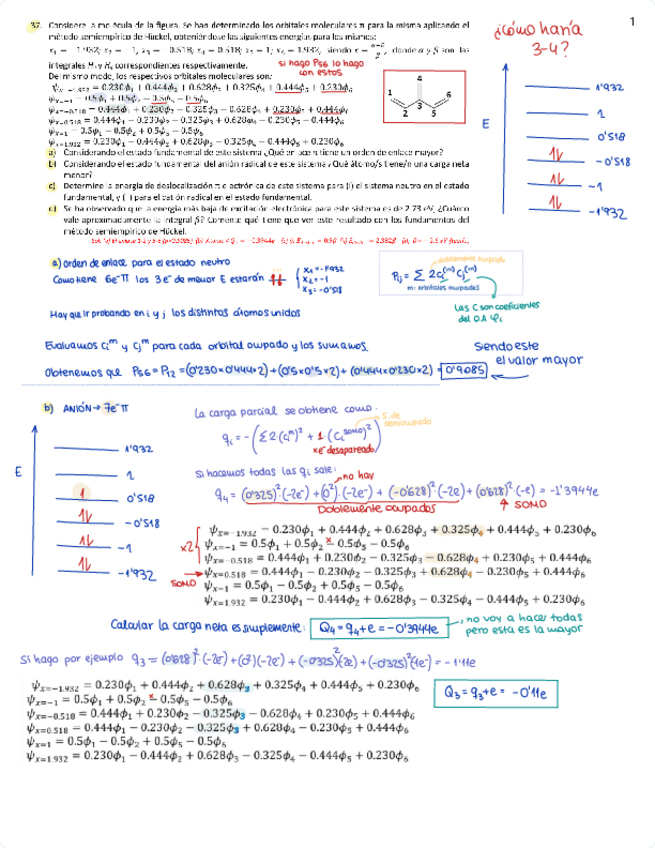 1
¿Cómo haría
3-4?
32. Considere la molécula de la figura. Se han determinado los orbitales moleculares π para la misma aplicando el
método semiempírico de Hückel, obteniéndose las siguientes energías para los mismos:
integrales Hᵢᵢ y Hᵢⱼ correspondientes respectivamente.
si hago P₅₆ lo hago
con estos
Del mismo modo, los respectivos orbitales moleculares son:
ψx=−1.932 = 0.230ϕ₁ + 0.444ϕ₂ + 0.628ϕ₃ + 0.325ϕ₄ + 0.444ϕ₅ + 0.230ϕ₆
ψx=−1 = 0.5ϕ₁ + 0.5ϕ₂ − 0.5ϕ₅ − 0.5ϕ₆
ψx=−0.518 = 0.444ϕ₁ + 0.230ϕ₂ − 0.325ϕ₃ − 0.628ϕ₄ + 0.230ϕ₅ + 0.444ϕ₆
ψx=0.518 = 0.444ϕ₁ − 0.230ϕ₂ − 0.325ϕ₃ + 0.628ϕ₄ − 0.230ϕ₅ + 0.444ϕ₆
ψx=1 = 0.5ϕ₁ − 0.5ϕ₂ + 0.5ϕ₅ − 0.5ϕ₆
ψx=1.932 = 0.230ϕ₁ − 0.444ϕ₂ + 0.628ϕ₃ − 0.325ϕ₄ − 0.444ϕ₅ + 0.230ϕ₆
1 2 3 4 5 6
E
1'932
1
0'518
−0'518
−1
−1'932
a) Considerando el estado fundamental de este sistema ¿Qué enlace π tiene un orden de enlace mayor?
b) Considerando el estado fundamental del anión radical de este sistema ¿Qué átomo/s tiene/n una carga neta
menor?
c) Determine la energía de deslocalización π electrónica de este sistema para (i) el sistema neutro en el estado
fundamental, y (ii) para el catión radical en el estado fundamental.
d) Se ha observado que la energía más baja de excitación electrónica para este sistema es de 2.73 eV, ¿Cuánto
vale aproximadamente la integral β? Comente qué tiene que ver este resultado con los fundamentos del
método semiempírico de Hückel.
a) orden de enlace para el estado neutro
Como tiene 6e⁻π los 3 e⁻ de menor E estarán
x₁ = -1'932
x₂ = -1
x₃ = -0'518
doblemente ocupado
Pᵢⱼ = Σ 2Cᵢ⁽ᵐ⁾Cⱼ⁽ᵐ⁾
m: orbitales ocupados
Las C son coeficientes
del O.A φᵢ
Hay que ir probando en i y j los distintos átomos unidos
Evaluamos Cᵢᵐ y Cⱼᵐ para cada orbital ocupado y los sumamos.
Sendo este
el valor mayor
Obtenemos que P₅₆ = P₁₂ = (0'230×0'444×2) + (0'5×0'5×2) + (0'444×0'230×2) = 0'9085
b) ANIÓN → 7e⁻π
La carga parcial se obtiene como:
E
1'932
1
0'518
−0'518
−1
−1'932
qᵢ = −(Σ 2·(Cᵢᵐ)² + 1·(Cᵢˢᴼᴹᴼ)²)
S. de
semiocupado
xe⁻ desapareado
Si hacemos todas las qᵢ sale:
no hay
q₄ = (0'325)²·(-2e⁻) + (0²)·(-2e⁻) + (-0'628)²·(-2e) + (0'628)²·(-e) = −1'3944e
Doblemente ocupados
SOMO
x2
ψx=−1.932 = 0.230ϕ₁ + 0.444ϕ₂ + 0.628ϕ₃ + 0.325ϕ₄ + 0.444ϕ₅ + 0.230ϕ₆
ψx=−1 = 0.5ϕ₁ + 0.5ϕ₂ − 0.5ϕ₅ − 0.5ϕ₆
ψx=−0.518 = 0.444ϕ₁ + 0.230ϕ₂ − 0.325ϕ₃ − 0.628ϕ₄ + 0.230ϕ₅ + 0.444ϕ₆
SOMO
ψx=0.518 = 0.444ϕ₁ − 0.230ϕ₂ − 0.325ϕ₃ + 0.628ϕ₄ − 0.230ϕ₅ + 0.444ϕ₆
ψx=1 = 0.5ϕ₁ − 0.5ϕ₂ + 0.5ϕ₅ − 0.5ϕ₆
ψx=1.932 = 0.230ϕ₁ − 0.444ϕ₂ + 0.628ϕ₃ − 0.325ϕ₄ − 0.444ϕ₅ + 0.230ϕ₆
Calcular la carga neta es simplemente: Q₄ = q₄+e = −0'3944e
no voy a hacer todas
pero esta es la mayor
Si hago por ejemplo q₃ = (0'628)²·(-2e⁻) + (0²)(-2e⁻) + (-0'325)²(2e) + (-0'325)²(1e⁻) = −1'11e
ψx=−1.932 = 0.230ϕ₁ + 0.444ϕ₂ + 0.628ϕ₃ + 0.325ϕ₄ + 0.444ϕ₅ + 0.230ϕ₆
ψx=−1 = 0.5ϕ₁ + 0.5ϕ₂ − 0.5ϕ₅ − 0.5ϕ₆
ψx=−0.518 = 0.444ϕ₁ + 0.230ϕ₂ − 0.325ϕ₃ − 0.628ϕ₄ + 0.230ϕ₅ + 0.444ϕ₆
ψx=0.518 = 0.444ϕ₁ − 0.230ϕ₂ − 0.325ϕ₃ + 0.628ϕ₄ − 0.230ϕ₅ + 0.444ϕ₆
ψx=1 = 0.5ϕ₁ − 0.5ϕ₂ + 0.5ϕ₅ − 0.5ϕ₆
ψx=1.932 = 0.230ϕ₁ − 0.444ϕ₂ + 0.628ϕ₃ − 0.325ϕ₄ − 0.444ϕ₅ + 0.230ϕ₆
Q₃ = q₃+e = −0'11e